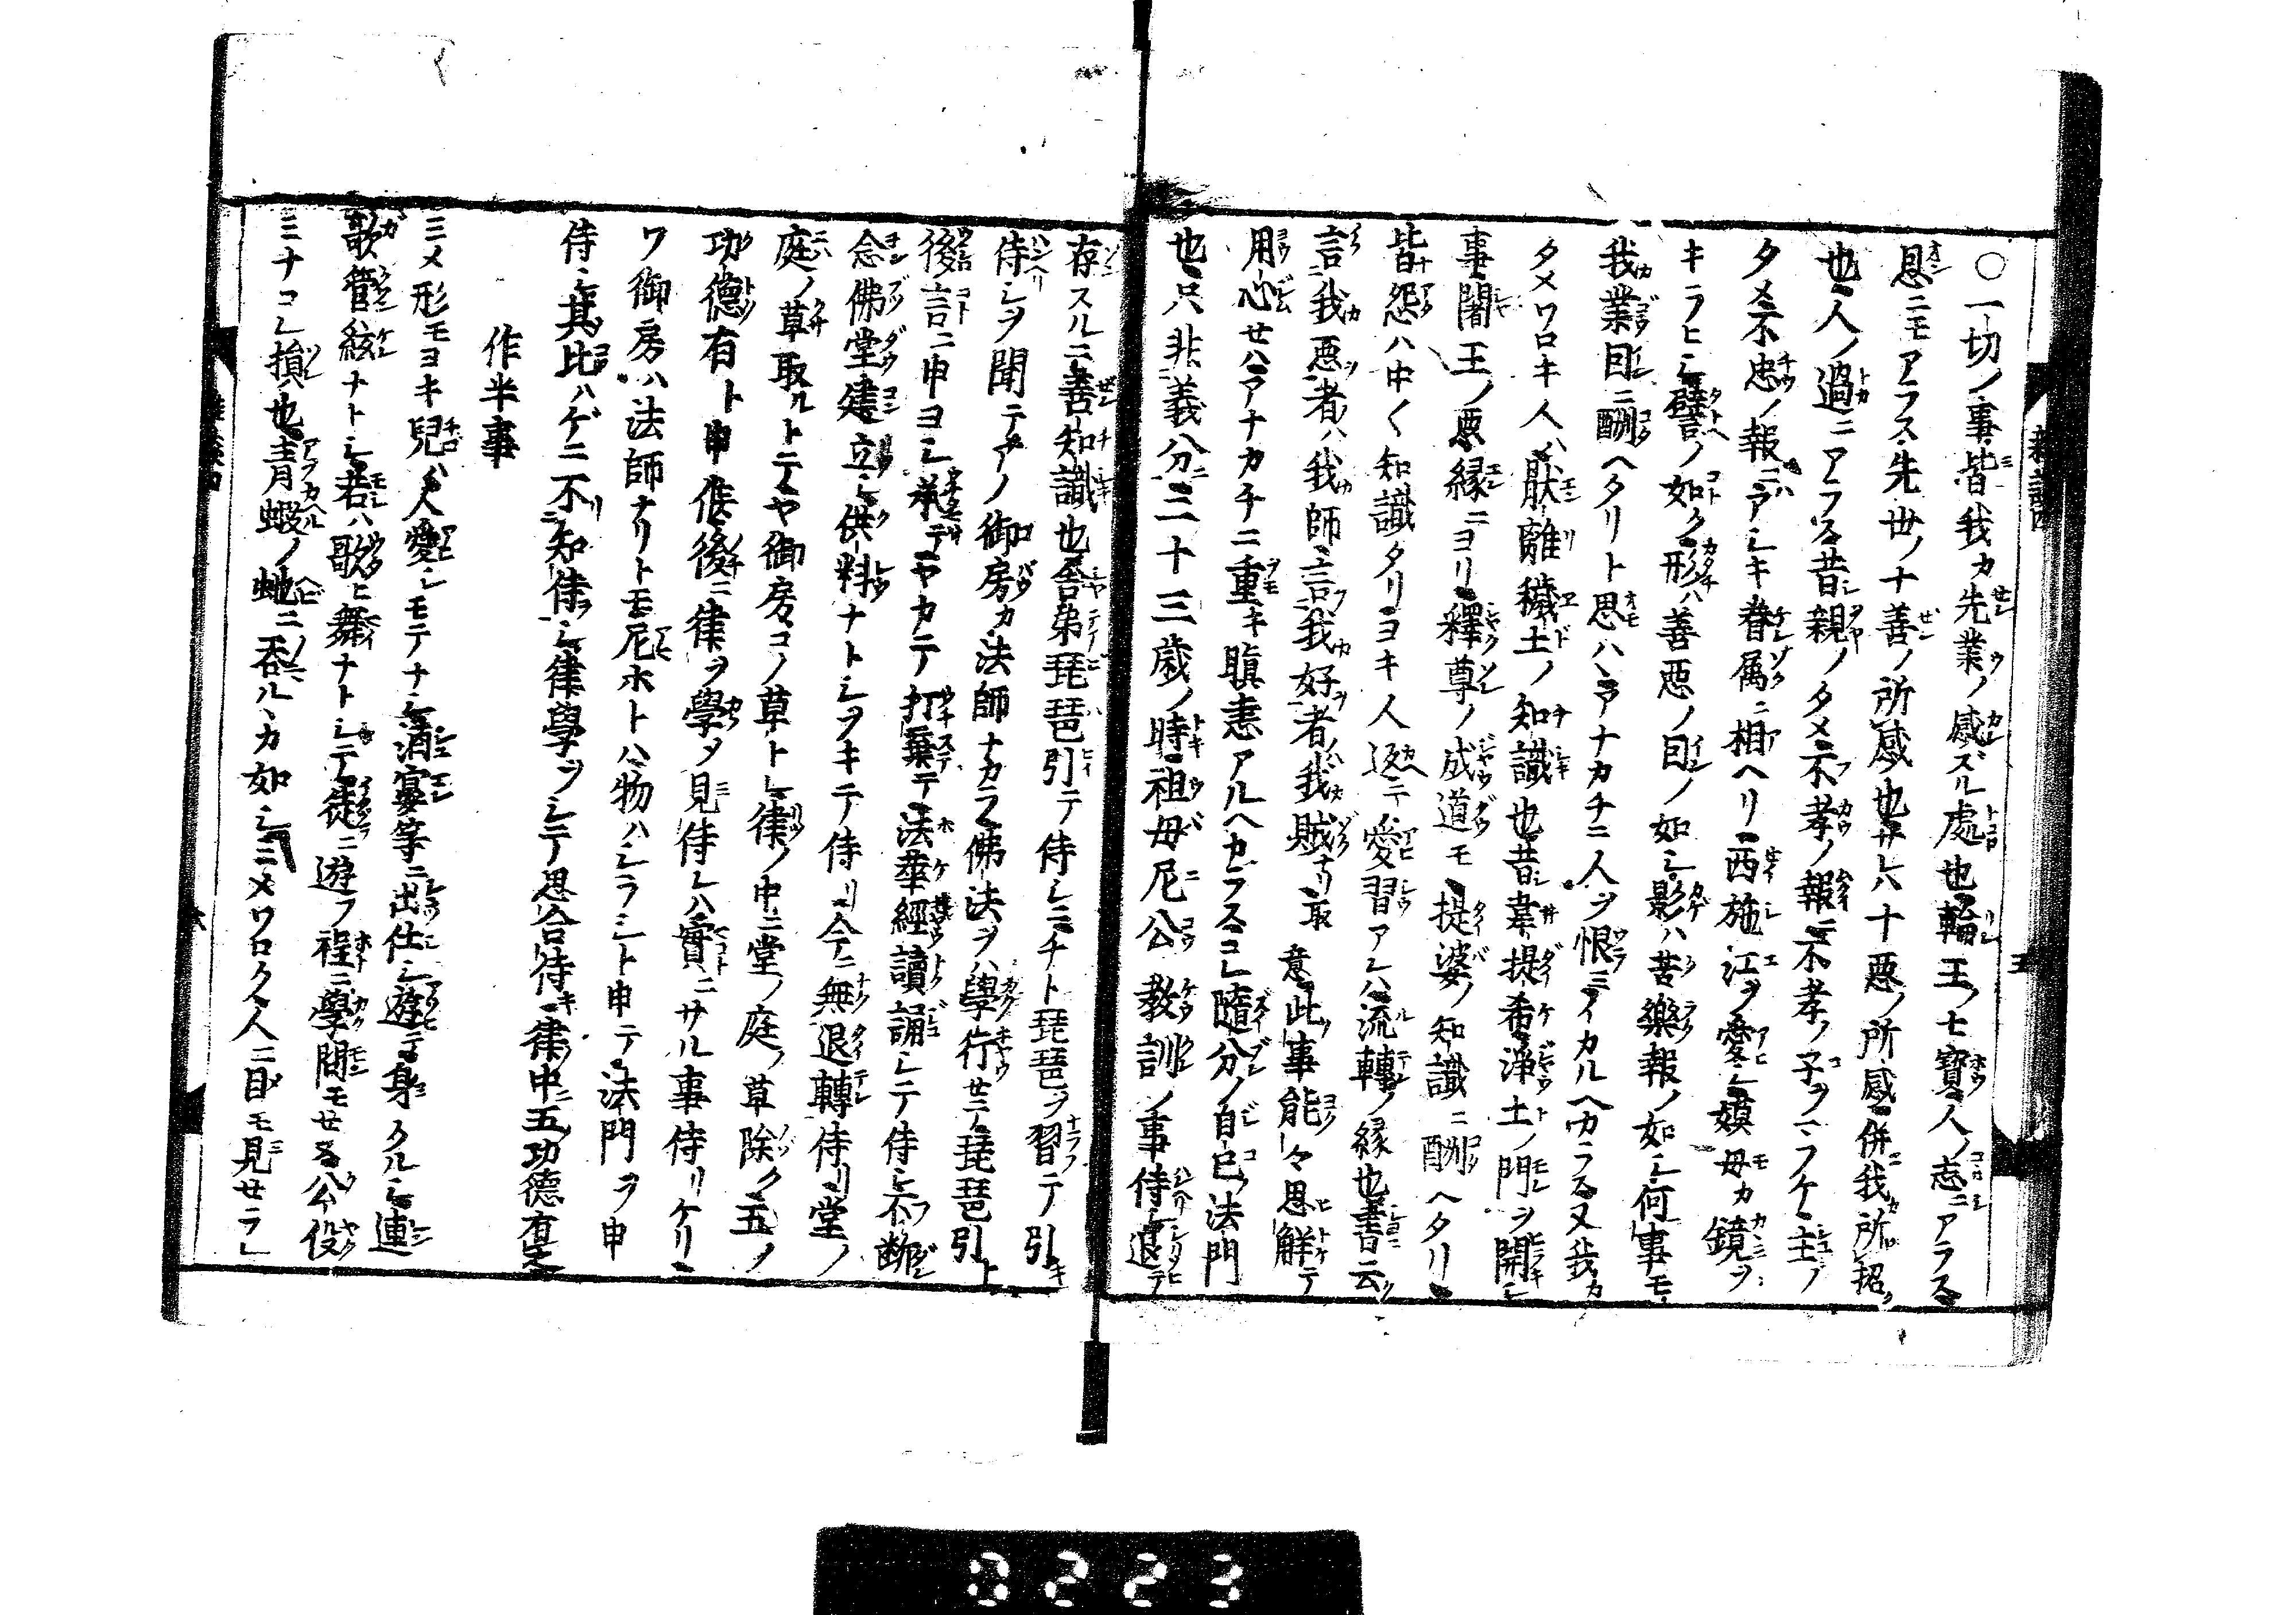 〇一切ノ事皆我カ先業ノ感ズル處也輪王ノ七寳人ノ志ニアラス
恩ニモアラス先世ノ十善ノ所感也サレハ十惡ノ所感併我カ所招
也人ノ過ニアラス昔親ノタメ不孝ノ報ニ不孝ノ子ヲマフケ主ノ
タメ不忠ノ報ニハアシキ眷属ニ相ヘリ西施江ヲ愛シ嫫母カ鏡ヲ
キラヒシ譬ノ如ク形ハ善惡ノ因ノ如シ影ハ苦樂報ノ如シ何事モ
我業因ニ酬ヘタリト思ハヽアナカチニ人ヲ恨ミイカルヘカラス又我カ
タメワロキ人ハ厭離穢土ノ知識也昔韋提希浄土ノ門ヲ開シ
事闍王ノ惡縁ニヨリ釋尊ノ成道モ提婆ノ知識ニ酬ヘタリ
皆怨ハ中く知識タリヨキ人返テ愛習アレハ流轉ノ縁也書云
言我惡者ハ我師言我好者ハ我賊ナリ取意此事能々思解テ
用心セハアナカチニ重キ瞋恚アルヘカラスコレ随分ノ自己ノ法門
也只非義分ニ二十三歳ノ時祖母尼公教訓ノ事侍シ退テ
存スルニ善知識也舎弟琵琶引テ侍シニチト琵琶ヲ習テ引
侍シヲ聞テアノ御房カ法師ナカラ佛法ヲハ學行セテ琵琶引ト
後言ニ申ヨシ承テヤカテ打棄テ法華經讀誦シテ侍シ不断
念佛堂建立シ供料ナトシヲキテ侍リ今ニ無退轉侍リ堂ノ
庭ノ草取ルトテヤ御房コノ草トレ律ノ中ニ堂ノ庭ノ草除ク五ノ
功徳有ト申候後ニ律ヲ學タ見侍レハ實ニサル事侍リケリ
ワ御房ハ法師ナリトモ尼ホトハ物ハシラシト申テ法門ヲ申
侍シ其比ハゲニ不知侍シ律學ヲシテ思合侍キ律中五功徳有之
作半事
ミメ形モヨキ兒ハ人愛シモテナシ酒宴等ニ出仕シ遊テ身クルシ連
歌管絃ナトシ若ハ歌ヒ舞ナトシテ徒ニ遊フ程ニ學問モセス公役
ミナコレ損也青蝦ノ蛇ニ呑ルヽカ如シミメワロク人ニ目モ見セラレ